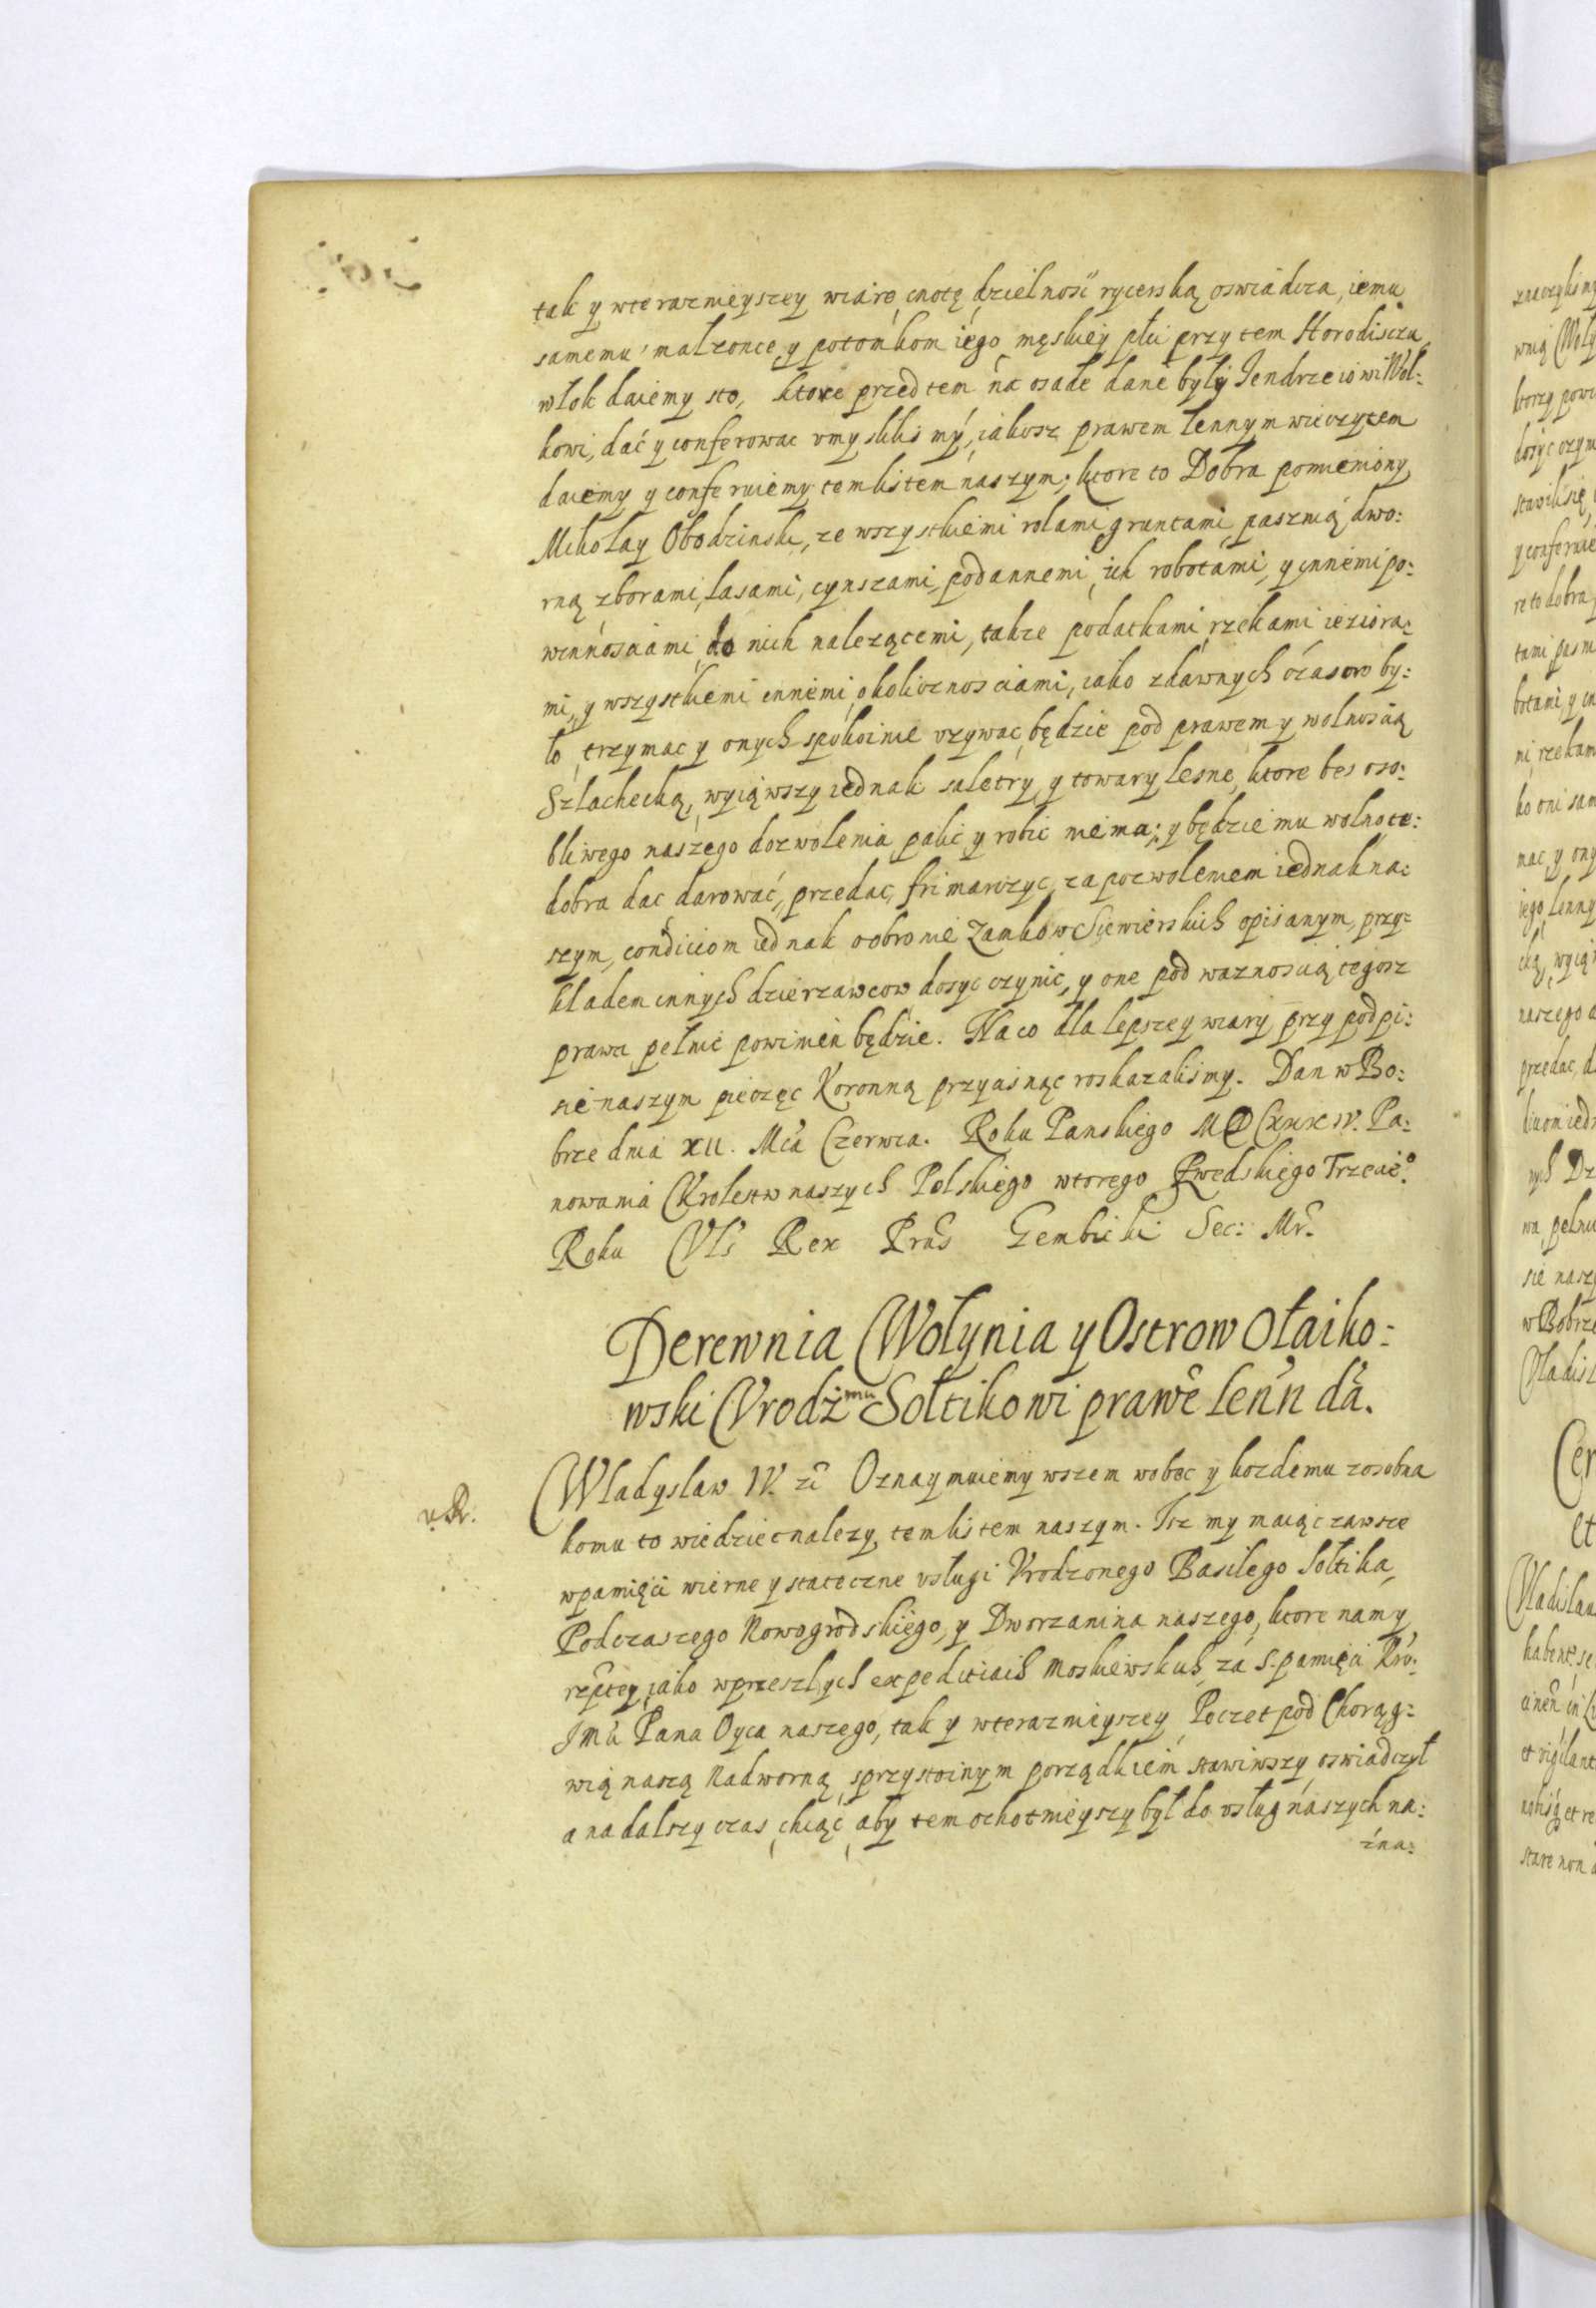 tak y wteraznieyszey wiarę, cnotę dzielnosć rycerską oswiadcza, iemu
samemu, małzonce y potomkom iego męskiey płci przy tem Horodisczu
włok daiemy sto, ktore przedtem na osade dane były Jendrzeiowi Woł:
kowi, dać y conferowac vmyslilismý, iakosz prawem lennym wieczytem
daiemy y conferuiemy tem listem naszym; ktore to Dobra pomieniony
Mikołay Obodzinski, ze wszystkiemi rolami gruntami, pasznią dwo:
rną zborami, lasami, cynszami, poddannemi, ich robotami, y innemi po:
winnosciami do nich nalezącemi, takze podatkami rzekami ieziora:
mi, y wszystkiemi innemi, okolicznosciami, iako zdawnych czasow by:
ło, trzymac y onych spokoinie vzywac będzie pod prawem y wolnoscią
Szlachecką, wyiąwszy iednak saletry y towary lesne, ktore bes oso:
bliwego naszego dozwolenia palic y robic niema; y będzie mu wolno te:
dobra dac darować, przedac, frimarczyc, za pozwoleniem iednak na:
szym, condiciom iednak o obronie Zamkow Siewierskich opisanym, przy:
kładem innych dzierzawcow dosyc czynic, y one pod waznoscią tegosz
prawa pełnic powinien będzie. Na co dla lepszey wiary przy podpi:
sie naszym pieczęc Koronną przyćisnąc roskazalismy. Dan w Bo:
brze dnia XII. Mca Czerwca. Roku Panskiego MDCXXXIV. Pa:
nowania Krolestw naszych Polskiego wtorego Szwedskiego Trzecie°
Roku Vls Rex Prus Gembicki Sec: Mr.
Derewnia Wołynia y Ostrow Ołaiko:
wski Vrodz mu Sołtikowi prawe lenn da.
Władysław IV. zc Oznaymuiemy wszem wobec y kozdemu zosobna
v. R.
komu to wiedziec nalezy, tem listem naszym. Isz my maiąc zawsze
wpamięci wierne y stateczne vsługi Vrodzonego Basilego Sołtika,
Podczaszego Nowogrodskiego, y Dworzanina naszego, ktore nam y
rzptey, iako wprzeszłych expeditiach Moskiewskich za S. pamięci Kro:
JMci Pana Oyca naszego, tak y wteraznieyszey, Poczet pod Chorąg:
wią naszą Nadworną sprzystoinym porządkiem stawiwszy oswiadczył
a na dalszy czas chcąc aby tem ochotnieyszy był do vsług naszych na:
zna: